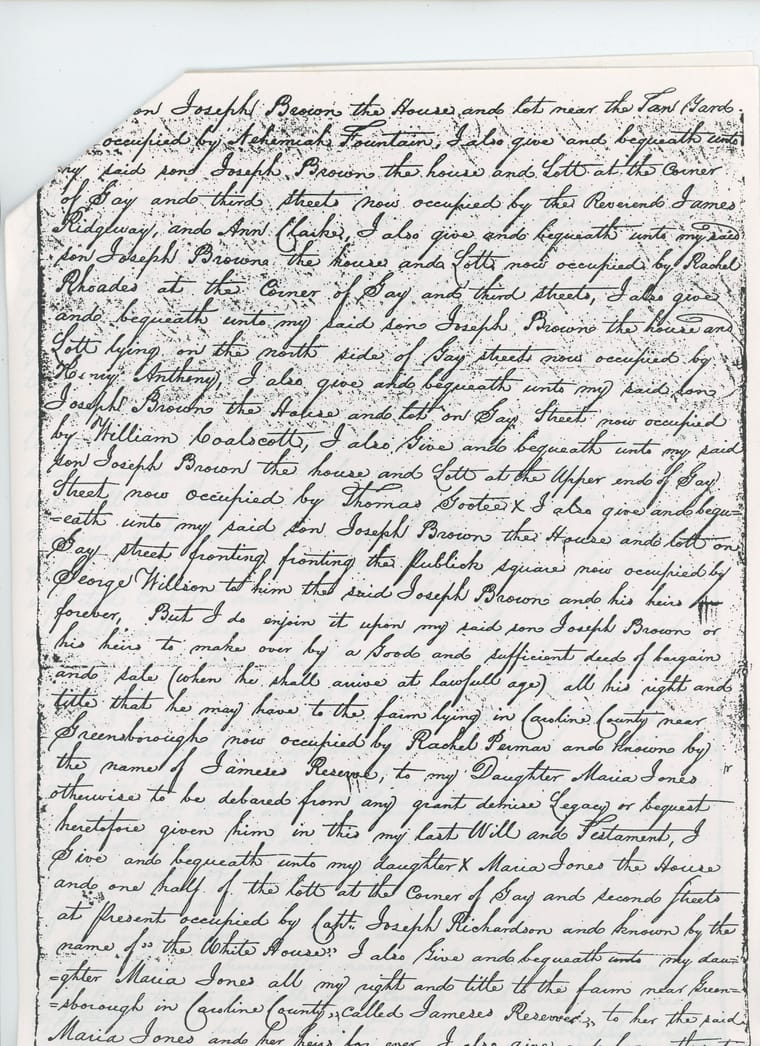 on Joseph Brown the House and lot near the Tan Yard
occupied by Nehemiah Fountain, I also give and bequeath unto
my said son Joseph Brown the house and Lott at the Corner
of Gay and third streets now occupied by the Reverend James
Ridgeway, and Ann Clarke, I also give and bequeath unto my said
son Joseph Brown the house and Lott now occupied by Rachel
Rhoades at the Corner of Gay and third streets, I also give
and bequeath unto my said son Joseph Brown the house and
Lott lying on the north side of Gay street now occupied by
Henry Anthony, I also give and bequeath unto my said son
Joseph Brown the House and lot on Gay Street now occupied
by William Coalscott, I also Give and bequeath unto my said
son Joseph Brown the house and Lott at the Upper end of Gay
Street now occupied by Thomas Gootee X I also give and bequ=
=eath unto my said son Joseph Brown the House and lott on
Gay street fronting fronting the publick square now occupied by
George Willson to him the said Joseph Brown and his heirs
forever, But I do enjoin it upon my said son Joseph Brown or
his heirs to make over by a Good and sufficient deed of bargain
and sale (when he shall arive at lawfull age) all his right and
title that he may have to the farm lying in Caroline County near
Greensborough now occupied by Rachel Permar and known by
the name of Jameses Reserve, to my Daughter Maria Jones
otherwise to be debared from any grant demise Legacy or bequest
heretofore given him in this my last Will and Testament, I
Give and bequeath unto my daughter X Maria Jones the House
and one half of the lott at the Corner of Gay and second streets
at present occupied by Capt. Joseph Richardson and known by the
name of "the White House" I also Give and bequeath unto my dau=
=ghter Maria Jones all my right and title to the farm near Green=
=sborough in Caroline County, called Jameses Reserve, to her the said
Maria Jones and her heirs for ever I also give and